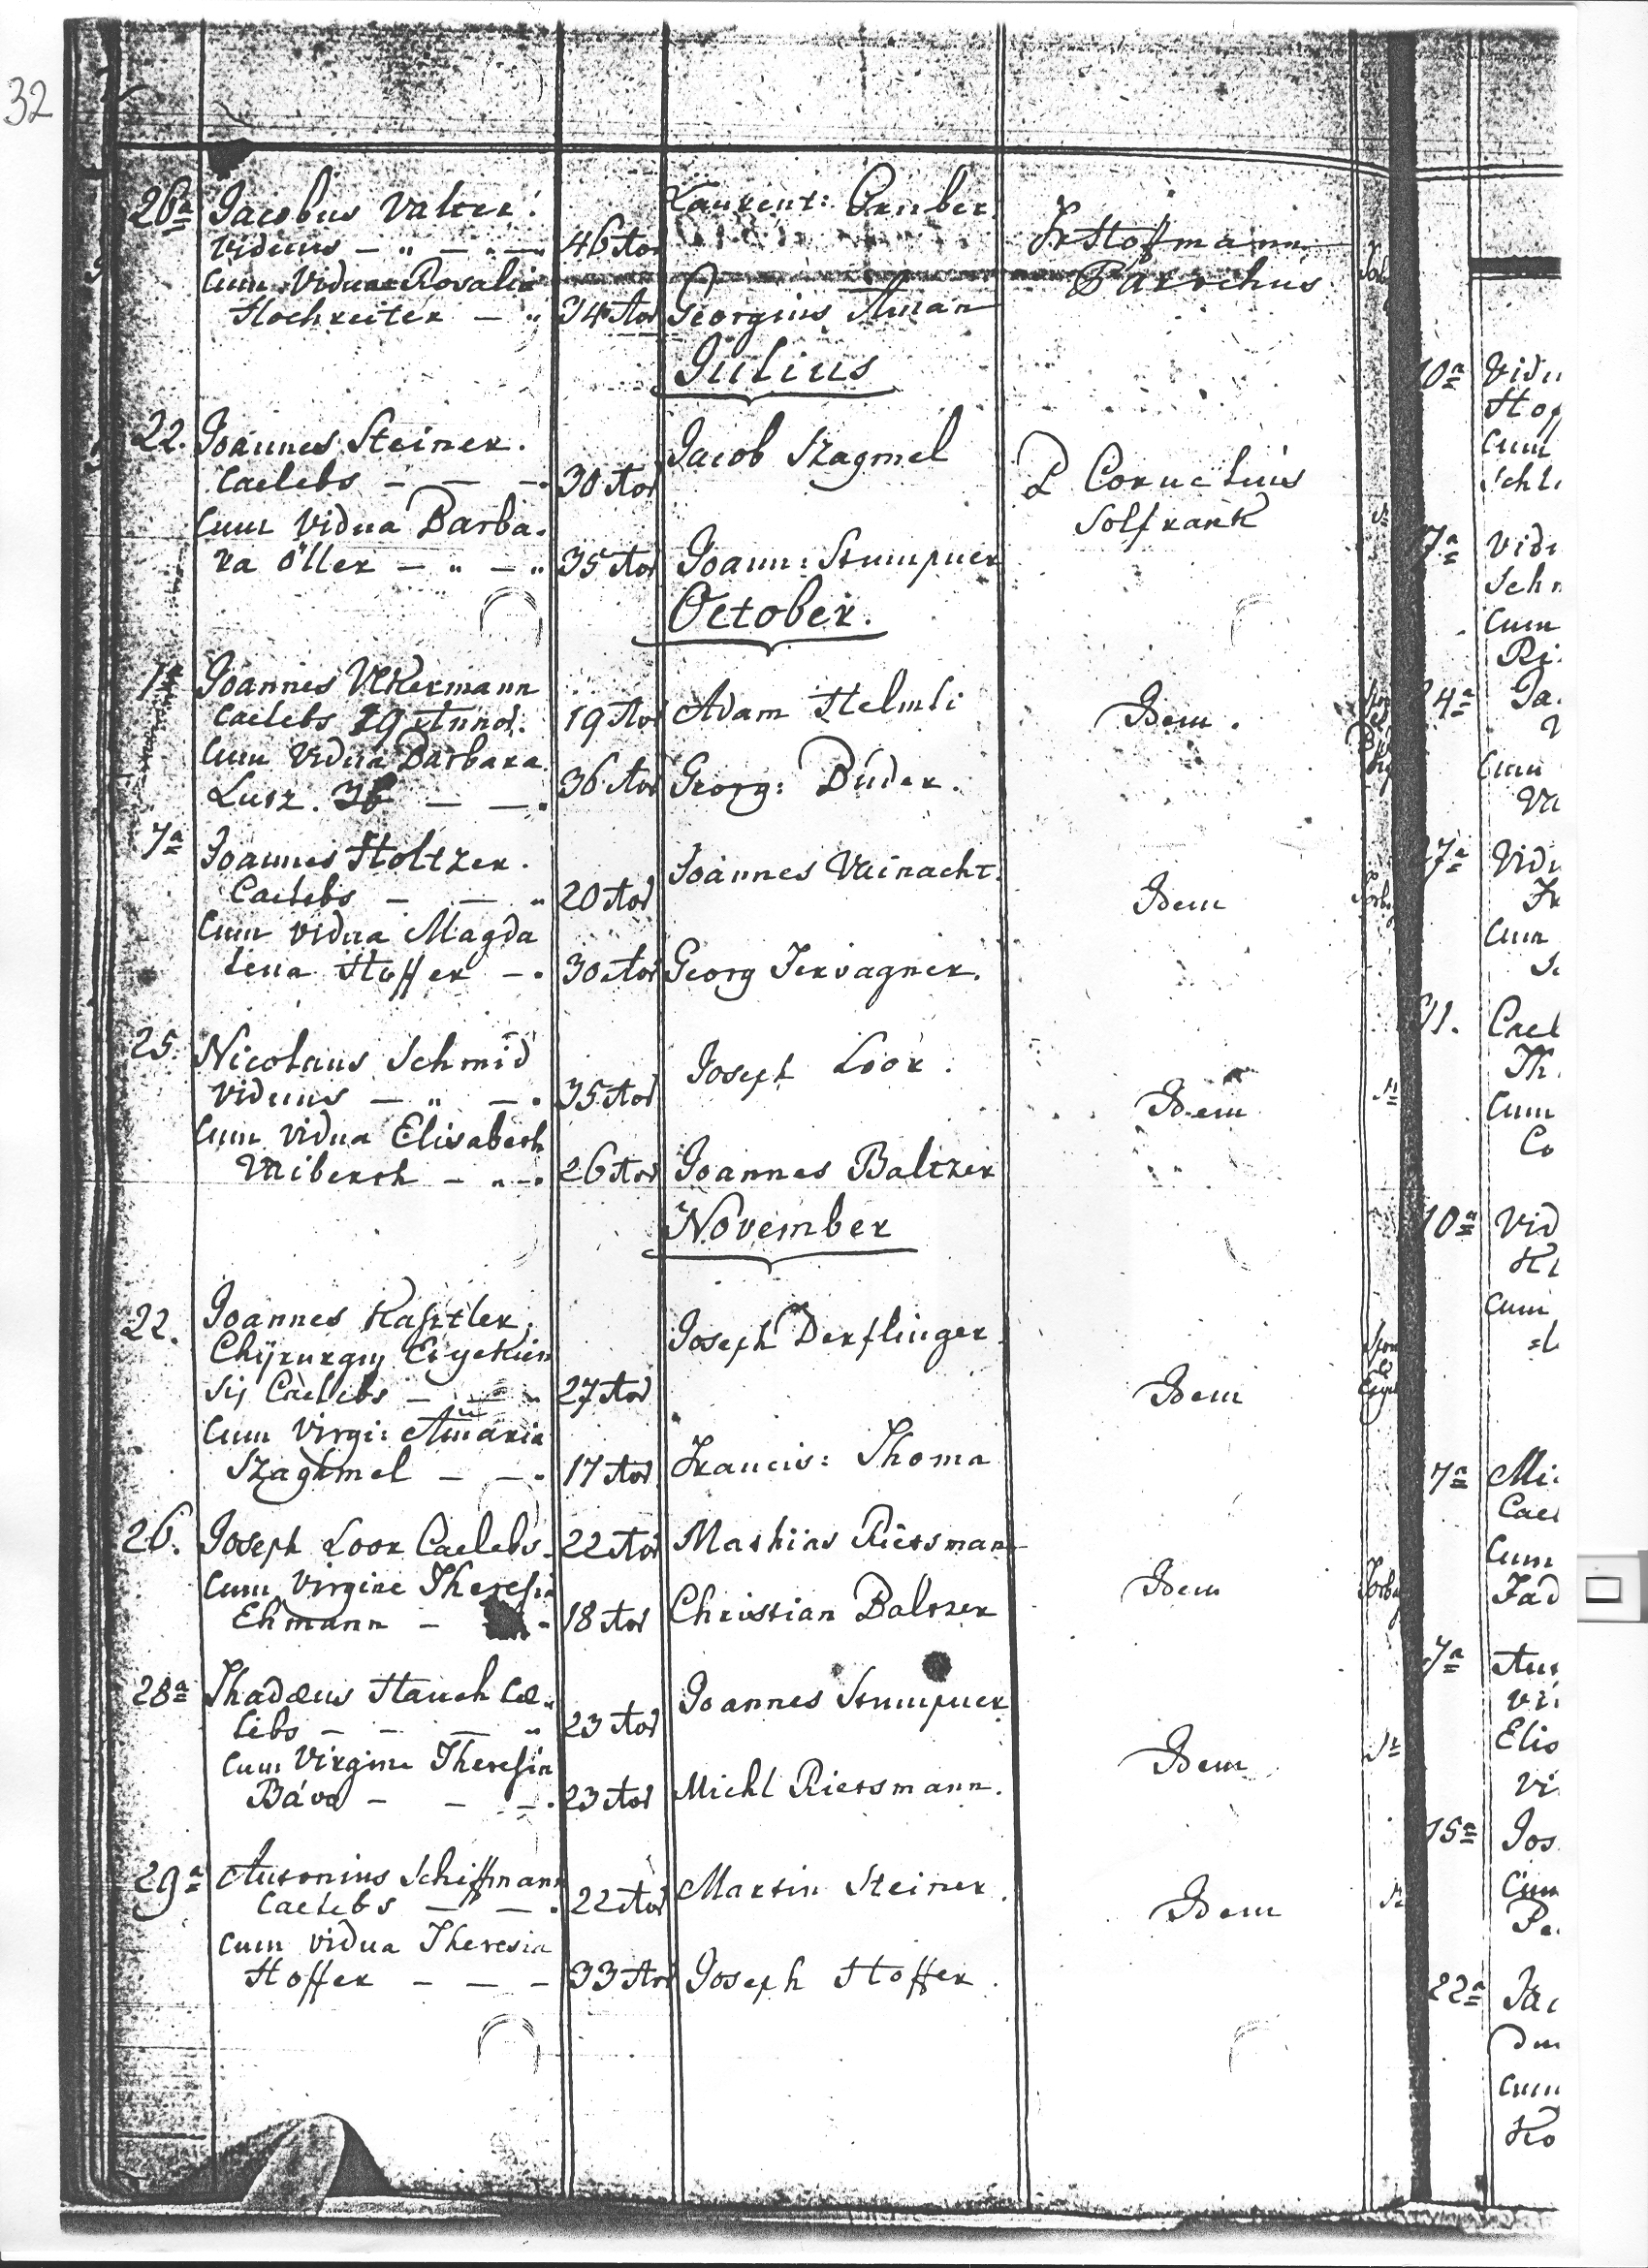 32
26a Jacobus Valter.
Viduus — " — " — 46 Aor
Cum Vidua Rosalia
Hochreiter — " 34 Aor
Laurent: Gruber.
Georgius Aman
Fr Hofmann
Parochus
Julius
22. Joannes Steiner.
Caelebs — — — . 30 Aor
Cum Vidua Barba-
ra Öller — " — " 35 Aor
Jacob Szagmel
Joann: Stumpner
P Cornelius
Solfrank
October.
1a Joannes Akermann
Caelebs 19 Annor. 19 Aor
Cum Vidua Barbara
Lusz. 36 — — . 36 Aor
Adam Helmli
Georg: Buder.
Idem.
7a Joannes Holtzer.
Caelebs — — " 20 Aor
Cum vidua Magda
lena Hoffer — . 30 Aor
Joannes Vainacht.
Georg Fervagner.
Idem
25. Nicolaus Schmid
Viduus — " — . 35 Aor
Cum vidua Elisabeth
Vaiberth — " — . 26 Aor
Joseph Loor.
Joannes Baltzer
Idem
November
22. Joannes Kastler.
Chÿrurgy
Caelebs — — " 27 Aor
Cum Virgi: Anna Maria
Szaghmel — — . 17 Aor
Joseph Derflinger.
Francis: Thoma
Idem
26. Joseph Loor Caelebs — 22 Aor
Cum Virgine Theresia
Ehmann — - 18 Aor
Mathias Rietsmann
Christian Baltzer
Idem
28a Thadæus Hauch Cæ-
lebs — — — " 23 Aor
Cum Virgine Theresia
Báva — — — . 23 Aor
Joannes Stumpner
Michl Rietsmann.
Idem
29a Antonius Schiffmann
Caelebs — — . 22 Aor
Cum vidua Theresia
Hoffer — — — 33 Aor
Martin Steiner.
Joseph Hoffer.
Idem
10a Vidu
Hof
Cum
Schl
7a Vidu
Schn
Cum
Ri
4a Ja
Cum
Va
7a Vidu
Fr
Cum
Cael
Th.
Cum
Co
10a Vid
Kl
Cum
7a Mi
Cael
Cum
Fad
7a An
Vi
Elis
Vi
15a Jos
Cum
Pe
22a Jac
Cum
Ko